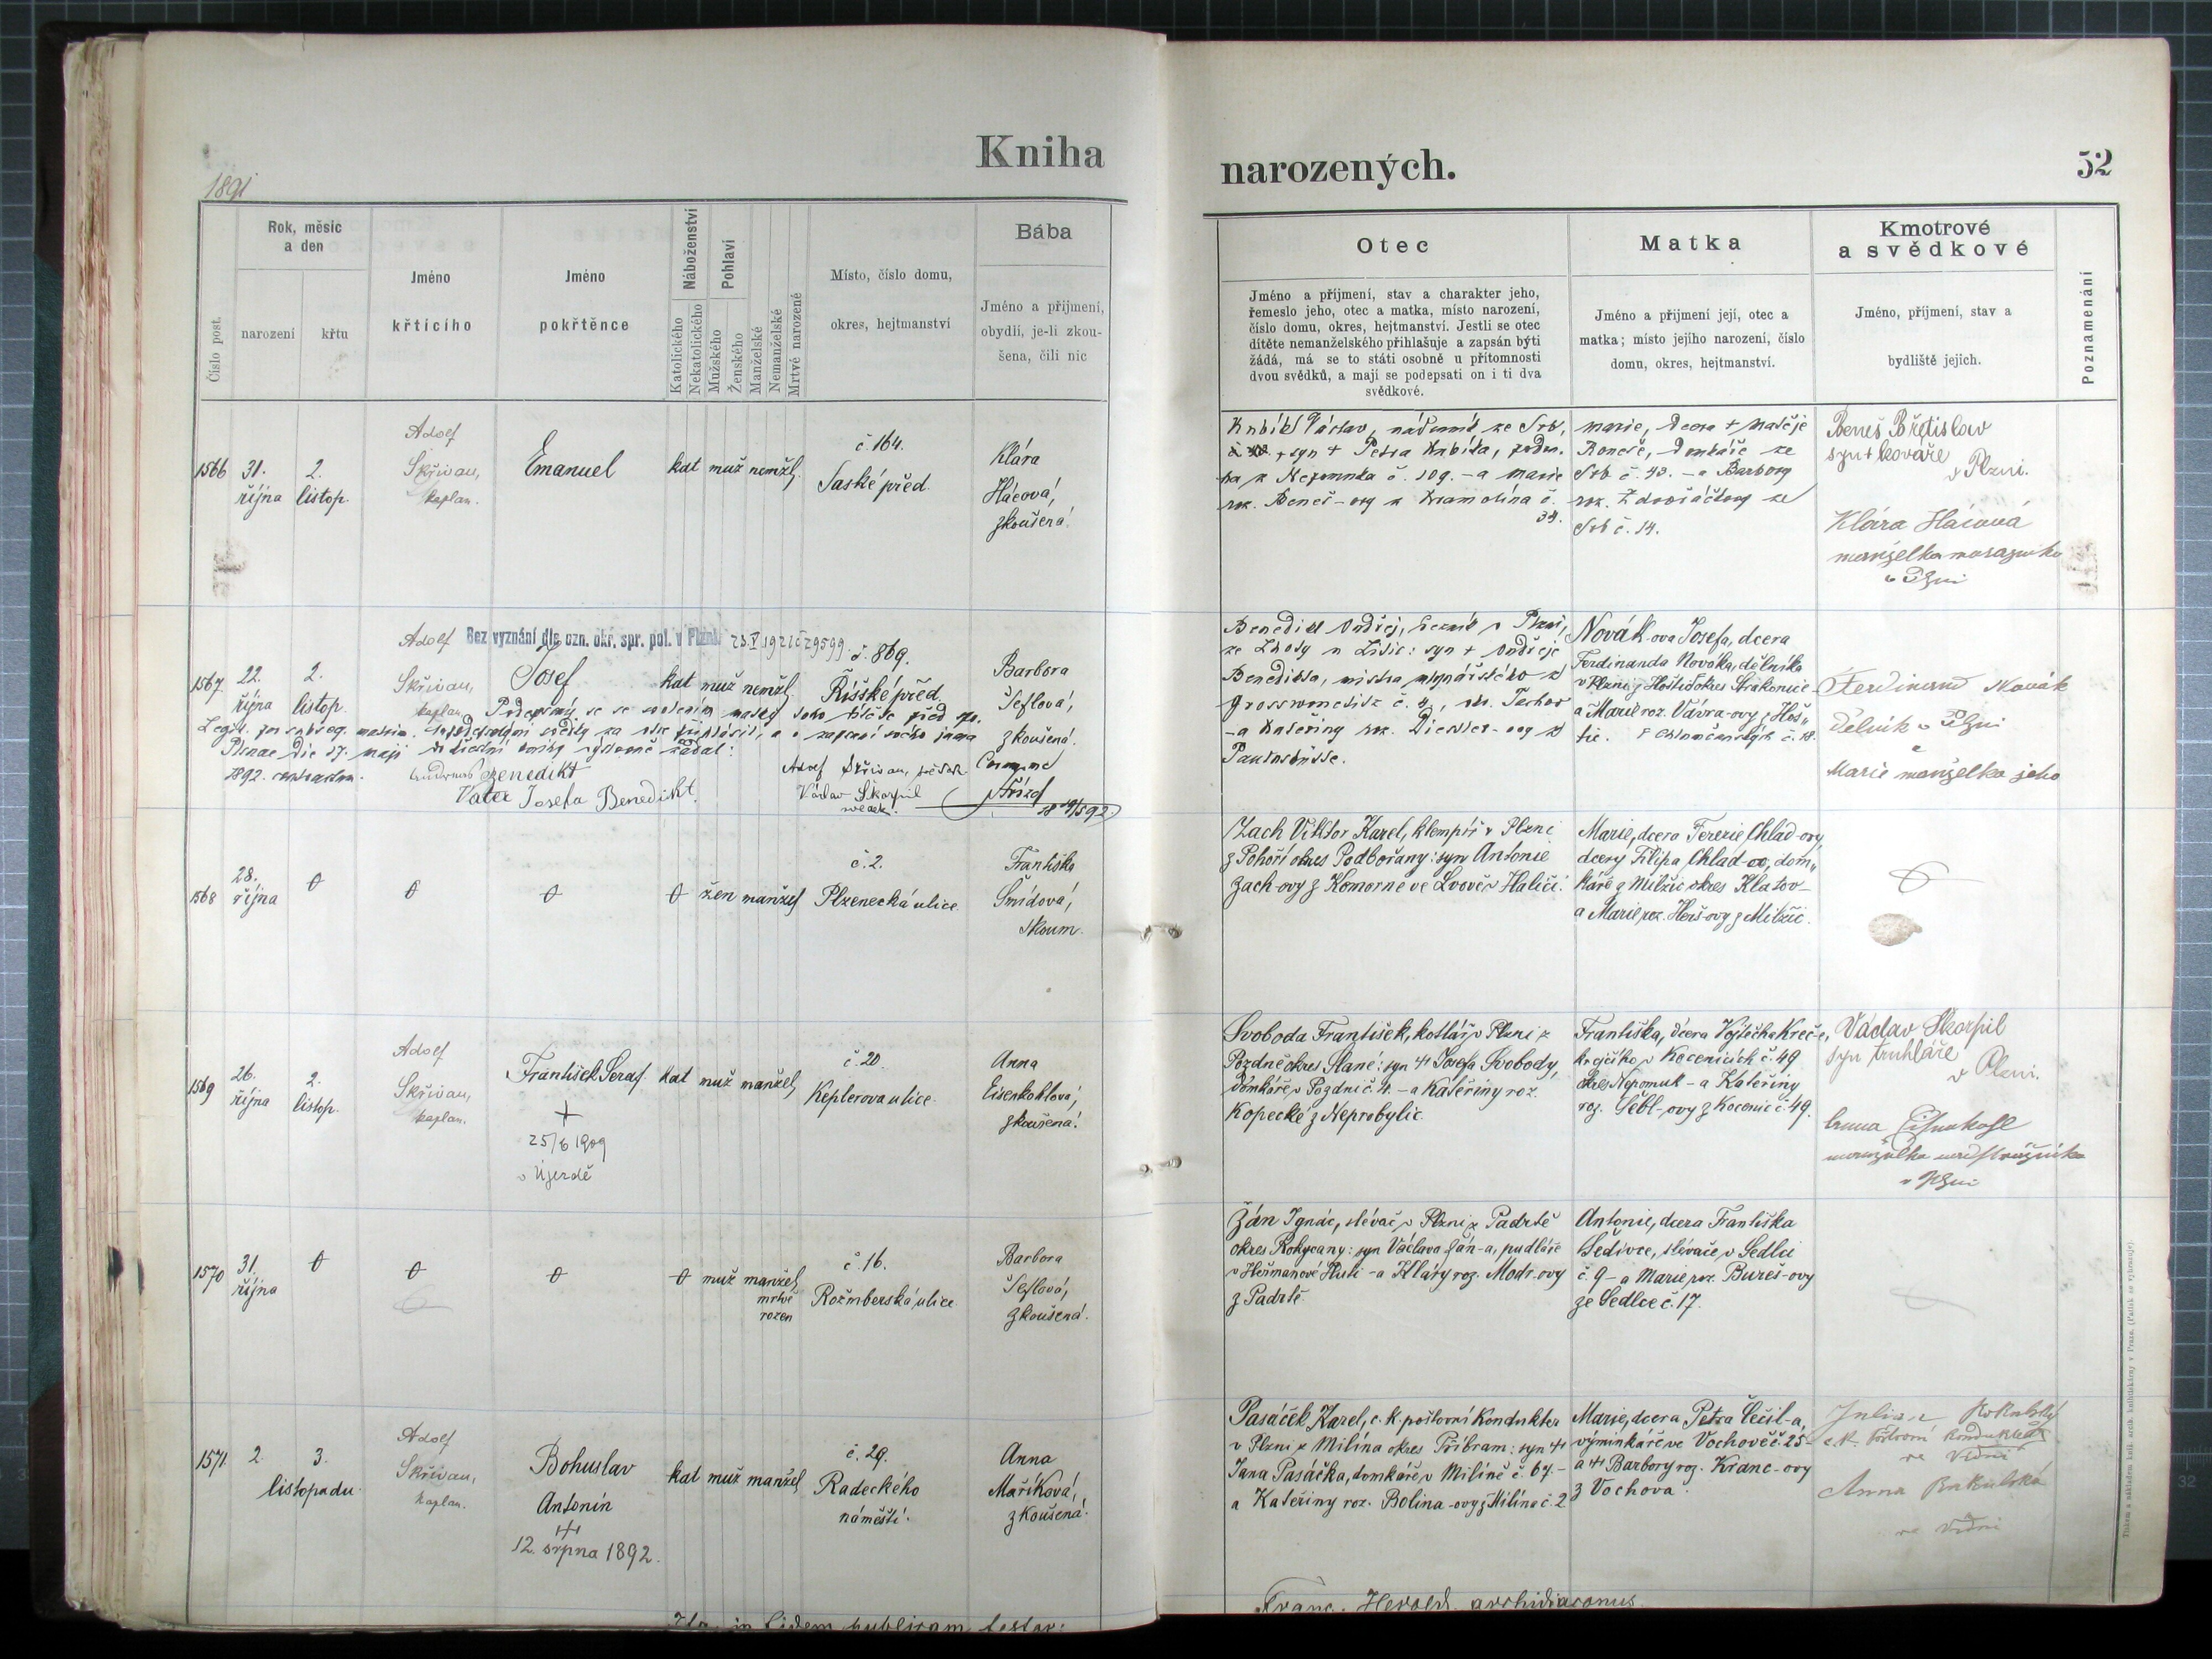 Kniha
narozených.
52
1891
Číslo post.
Rok, měsíc
a den
narození
křtu
Jméno
křtícího
Jméno
pokřtěnce
Náboženství
Katolického
Nekatolického
Pohlaví
Mužského
Ženského
Manželské
Nemanželské
Mrtvě narozené
Místo, číslo domu,
okres, hejtmanství
Bába
Jméno a příjmení,
obydlí, je-li zkou-
šena, čili nic
Otec
Jméno a příjmení, stav a charakter jeho,
řemeslo jeho, otec a matka, místo narození,
číslo domu, okres, hejtmanství. Jestli se otec
dítěte nemanželského přihlašuje a zapsán býti
žádá, má se to státi osobně u přítomnosti
dvou svědků, a mají se podepsati on i ti dva
svědkové.
Matka
Jméno a příjmení její, otec a
matka; místo jejího narození, číslo
domu, okres, hejtmanství.
Kmotrové
a svědkové
Jméno, příjmení, stav a
bydliště jejich.
Poznamenání
1566
31.
října
2.
listop.
Adolf
Skřivan,
kaplan.
Emanuel
kat muž nemžl.
č. 164.
Saské před.
Klára
Hácová,
zkoušená.
Václav, ze Srb,
syn + Petra
z Nepomuka č. 109. - a Marie
roz. Beneš-ovy z Kramolína č.
34.
Marie, dcera + Matěje
Beneše, domkáře ze
Srb č. 43. - a Barbory
roz. ze
Srb č. 14.
Beneš Břetislav
syn + kováře
v Plzni.
Klára Hácová
manželka
v Plzni
1567
22.
října
2.
listop.
Adolf
Skřivan,
kaplan
Bez vyznání dle ozn. okr. spr. pol. v Plzni 23.V.1921 č 29599
Josef
kat muž nemžl.
č. 869.
Říšské před.
Barbora
Šeflová,
zkoušená.
Podepsaný se se svolením matky toho dítěte před
Legit. per subseq. matrim.
Pilsnae die 17. maji
1892.
Benedikt
Vater Josefa Benedikt.
Adolf Skřivan,
Václav Škorpil
svědek.
Benedikt Ondřej, v Plzni,
ze Lhoty u : syn + Ondřeje
Benedikta, mistra mlynářského z
č. 4,
- a Kateřiny roz.
Novák-ova Josefa, dcera
Ferdinanda Nováka, dělníka
v Plzni z Hoštic okres Strakonice
a Marie roz. Vávra-ovy z Hoš„
tic.
Ferdinand Novák
dělník v Plzni
a
Marie manželka jeho
1568
28.
října
0
0
0
0 žen manžel
č. 2.
Plzenecká ulice.
Františka
Šmídová,
zkoum.
Zach Viktor Karel, klempíř v Plzni
z Pohoří okres Podbořany: syn Antonie
Zach-ovy z Komorne ve Lvově v Haliči.
Marie, dcera Terezie Chlad-ovy,
dcery Filipa Chlad-a, dom„
káře z Milžic okres Klatov-
a Marie roz. Herš-ovy z Milžic.
1569
26.
října
2.
listop.
Adolf
Skřivan,
kaplan.
František Seraf.
+
25/6 1909
v Újezdě
kat muž manžel,
č. 20.
Keplerova ulice.
Anna
Eisenkohlová,
zkoušená.
Svoboda František, kotlář v Plzni z
Pozdně okres Slané: syn + Josefa Svobody,
domkáře v Pozdni č. 4. - a Kateřiny roz.
Kopecké z Neprobylic.
Františka, dcera Vojtěcha Kreč-e,
krejčího v Kocenicích č. 49
okres Nepomuk - a Kateřiny
roz. Šebl-ovy z Kocenic č. 49.
Václav Škorpil
syn truhláře
v Plzni.
Anna
manželka
v Plzni
1570
31.
října
0
0
0
0 muž manžel,
mrtvě
rozen
č. 16.
Rožmberská ulice
Barbora
Šeflová,
zkoušená.
Žán Ignác, slévač v Plzni z Padrtě
okres Rokycany: syn Václava Žán-a, pudláře
v Heřmanově Huti - a Kláry roz. Modr-ovy
z Padrtě.
Antonie, dcera Františka
Šedivce, slévače v Sedlci
č. 9 - a Marie roz. Bureš-ovy
ze Sedlce č. 17.
1571.
2.
3.
listopadu.
Adolf
Skřivan,
kaplan.
Bohuslav
Antonín
+
12. srpna 1892.
kat muž manžel
č. 29.
Radeckého
náměstí.
Anna
Maříková,
zkoušená.
Pasáček Karel, c. k. poštovní kondukter
v Plzni z Milína okres Příbram: syn +
Jana Pasáčka, domkáře v Milíně č. 67. -
a Kateřiny roz. Bolina-ovy z Milína č. 2
Marie, dcera Petra Čečil-a,
výminkáře ve Vochově č. 25 -
a + Barbory roz. Kranc-ovy
z Vochova.
c. k. poštovní kondukter
ve Vídni
Anna
ve Vídni
in fidem publicam testor:
Franc. Herold, archidiaconus